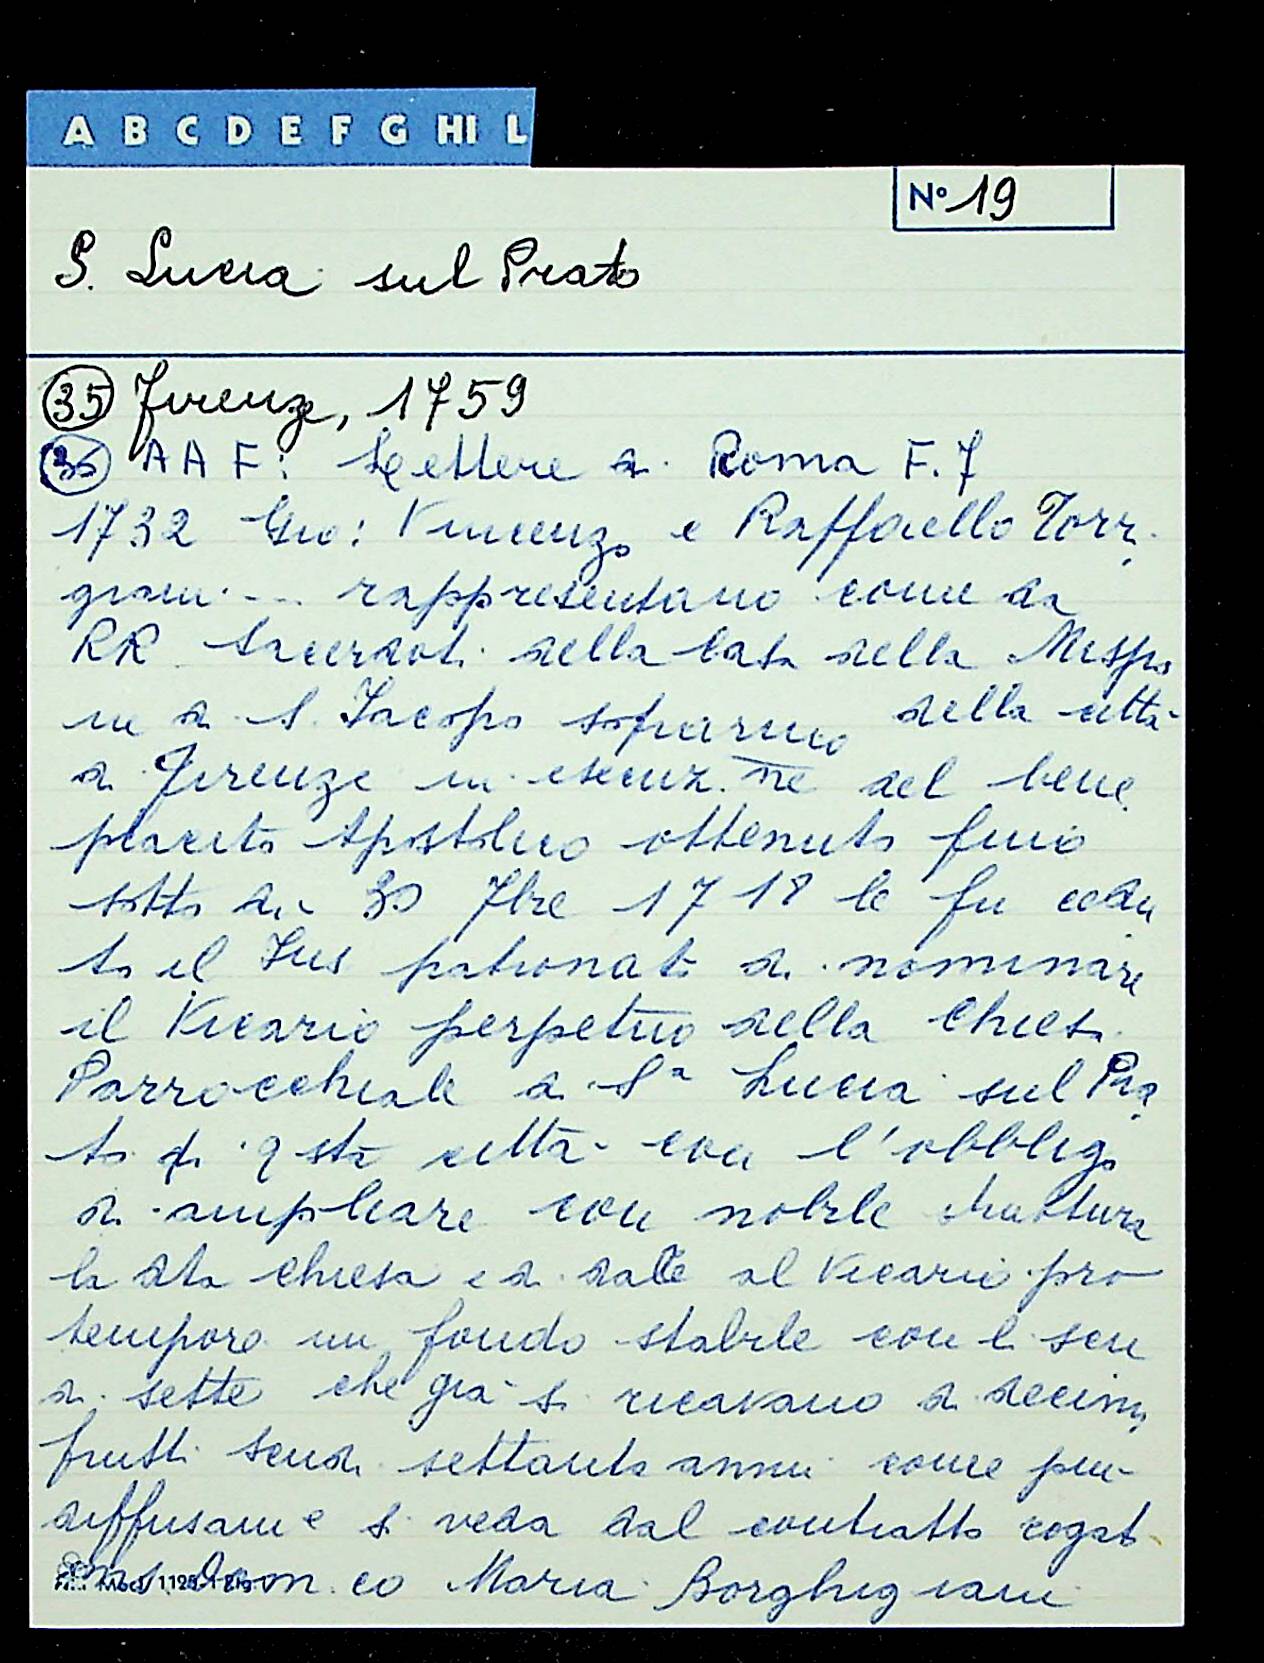 A B C D E F G HI L
N° 19
S. Lucia sul Prato
35 Firenze, 1759
36 AAF: Lettere di Roma F. 7
1732 Gio: Vincenzo e Raffaello Torri
giani ... rappresentano come da
RR Sacerdoti della Casa della Missio
ne di S. Jacopo soprarno della città
di Firenze in esecuz.ne del bene
placito Apostolico ottenuto fino
sotto dì 30 7bre 1718 le fu cedu
to il Jus patronato di nominare
il Vicario perpetuo della Chiesa
Parrocchiale di S.a Lucia sul Pra
to di qsta città con l'obbligo
di ampliare con nobile struttura
la dta chiesa e di dare al Vicario pro
tempore un fondo stabile con li scu
di sette che già si ricavano di decima
frutti scudi settanta annui come più
diffusam e si veda dal contratto rogato
Dom.co Maria Borghigiani